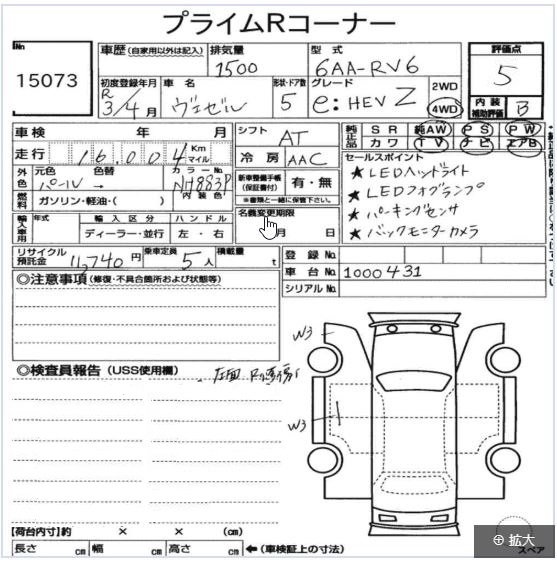 プライムRコーナー
No 15073
車歴 (自家用以外は記入)
排気量 1500
型式 6AA-RV6
評価点 5
初度登録年月 R 3/4月
車名 ヴェゼル
形状・ドア数 5
グレード e:HEV Z
2WD
4WD
内装補助評価 B
車検 年 月
シフト AT
純正品 SR 純AW PS PW
カワ TV ナビ エアB
走行 16,004 Km マイル
冷房 AAC
セールスポイント
★LEDヘッドライト
★LEDフォグランプ
★パーキングセンサ
★バックモニターカメラ
外色 元色 パール 色替 →
カラーNo. NH883P
内装色
新車整備手帳 (保証書付) 有・無
※書類と一緒に保管下さい。
燃料 ガソリン・軽油・( )
名義変更期限
月 日
輸入車用 年式 輸入区分 ハンドル
ディーラー・並行 左・右
リサイクル預託金 11,740 円
乗車定員 5人
積載量 t
登録No.
車台No. 1000431
シリアルNo.
◎注意事項 (修復・不具合箇所および状態等)
◎検査員報告 (USS使用欄)
W3
W3
【荷台内寸】約 × × (cm)
長さ cm 幅 cm 高さ cm ←(車検証上の寸法)
拡大
スペア